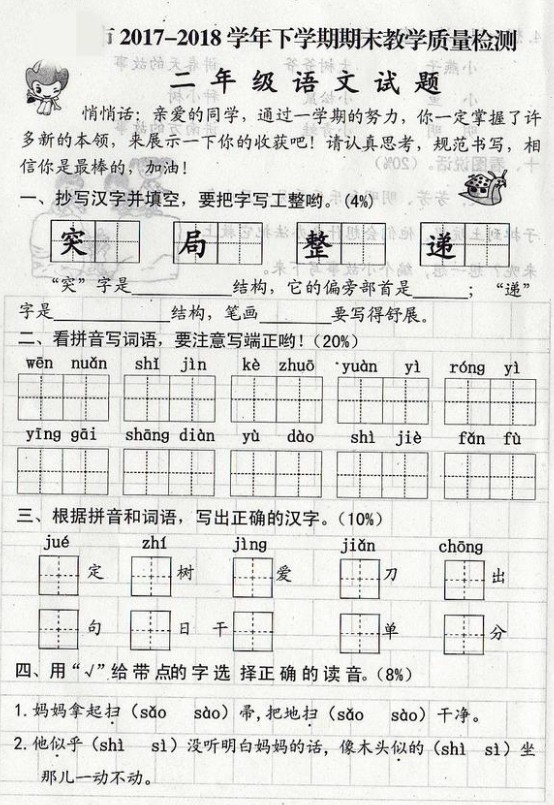 市2017-2018学年下学期期末教学质量检测
二年级语文试题
悄悄话：亲爱的同学，通过一学期的努力，你一定掌握了许
多新的本领，来展示一下你的收获吧！请认真思考，规范书写，相
信你是最棒的，加油！
一、抄写汉字并填空，要把字写工整哟。(4%)
突 局 整 递
“突”字是________结构，它的偏旁部首是_____；“递”
字是________结构，笔画______要写得舒展。
二、看拼音写词语，要注意写端正哟！(20%)
wēn nuǎn shǐ jìn kè zhuō yuàn yì róng yì
yīng gāi shāng diàn yù dào shì jiè fǎn fù
三、根据拼音和词语，写出正确的汉字。(10%)
jué zhí jìng jiǎn chōng
定 树 爱 刀 出
句 日 干 单 分
四、用“√”给带点的字选择正确的读音。(8%)
1.妈妈拿起扫（sǎo sào）帚,把地扫（sǎo sào）干净。
2.他似乎（shì sì）没听明白妈妈的话，像木头似的（shì sì）坐
那儿一动不动。